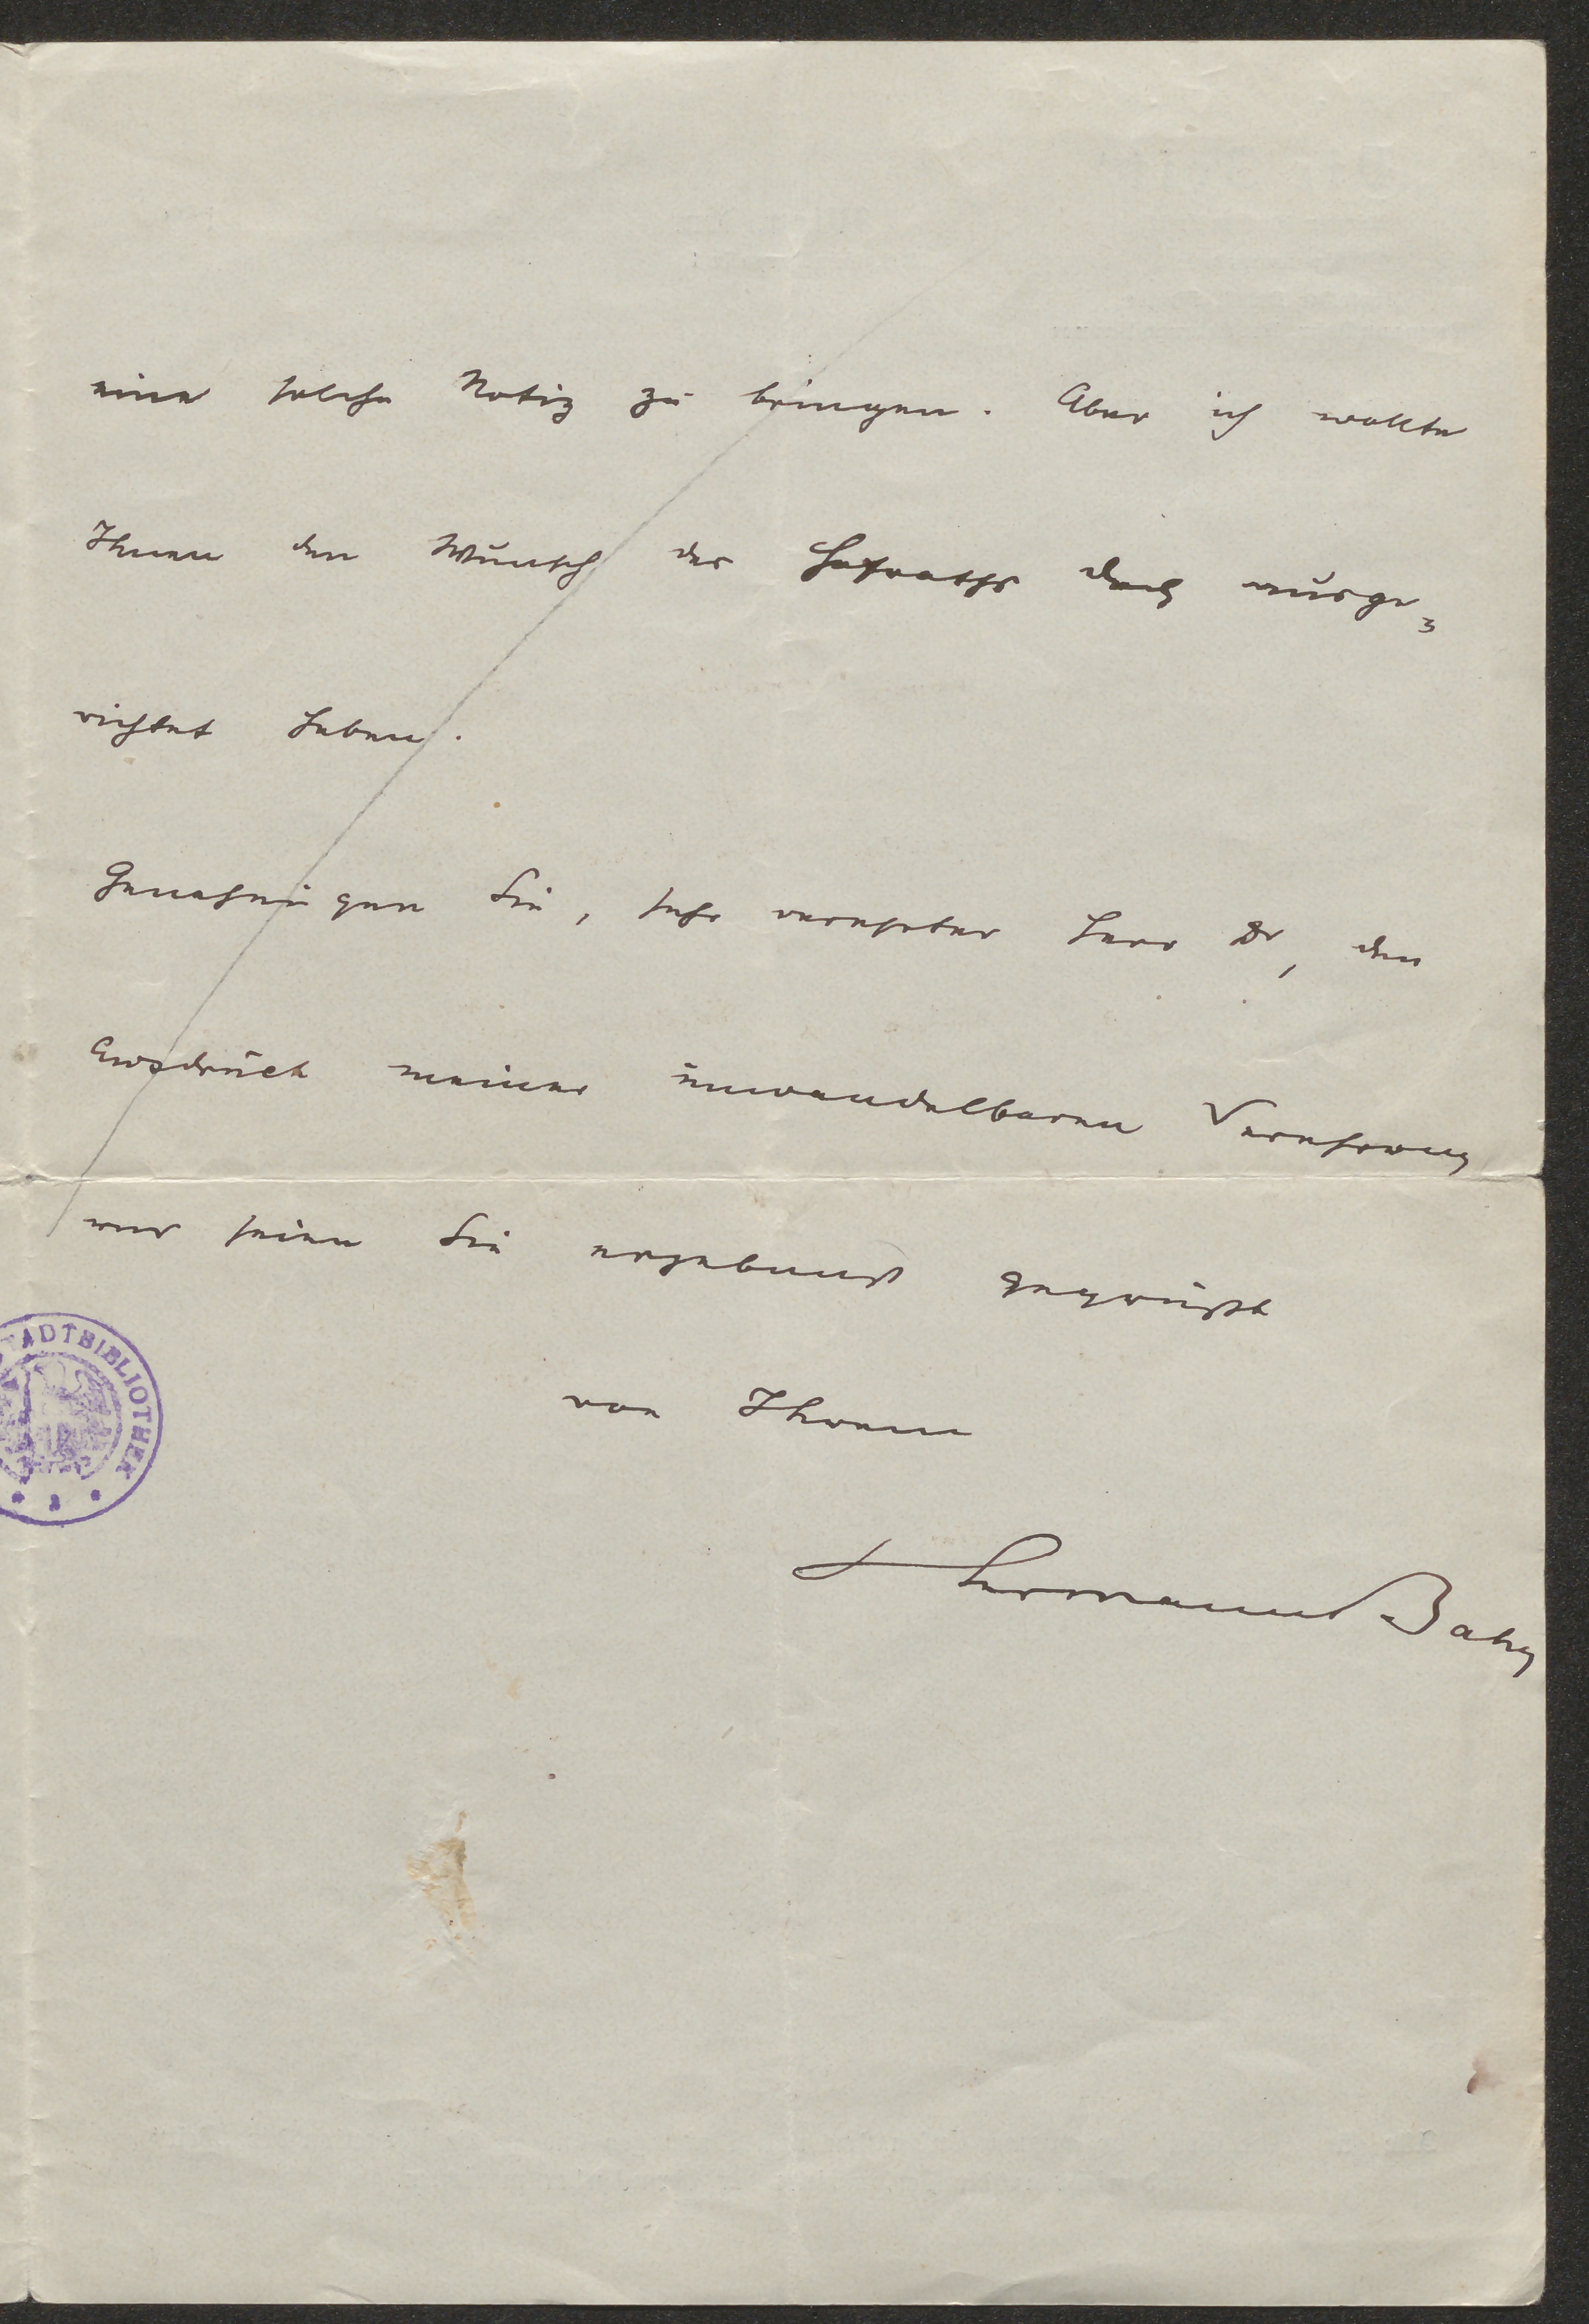 eine solche Notiz zu bringen. Aber ich wollte
Ihnen den Wunsch des Hofraths doch ausge=
richtet haben.
Genehmigen Sie, sehr verehrter Herr Dr, den
Ausdruck meiner unwandelbaren Verehrung
und seien Sie ergebenst gegrüßt
von Ihrem
Hermann Bahr
STADTBIBLIOTHEK